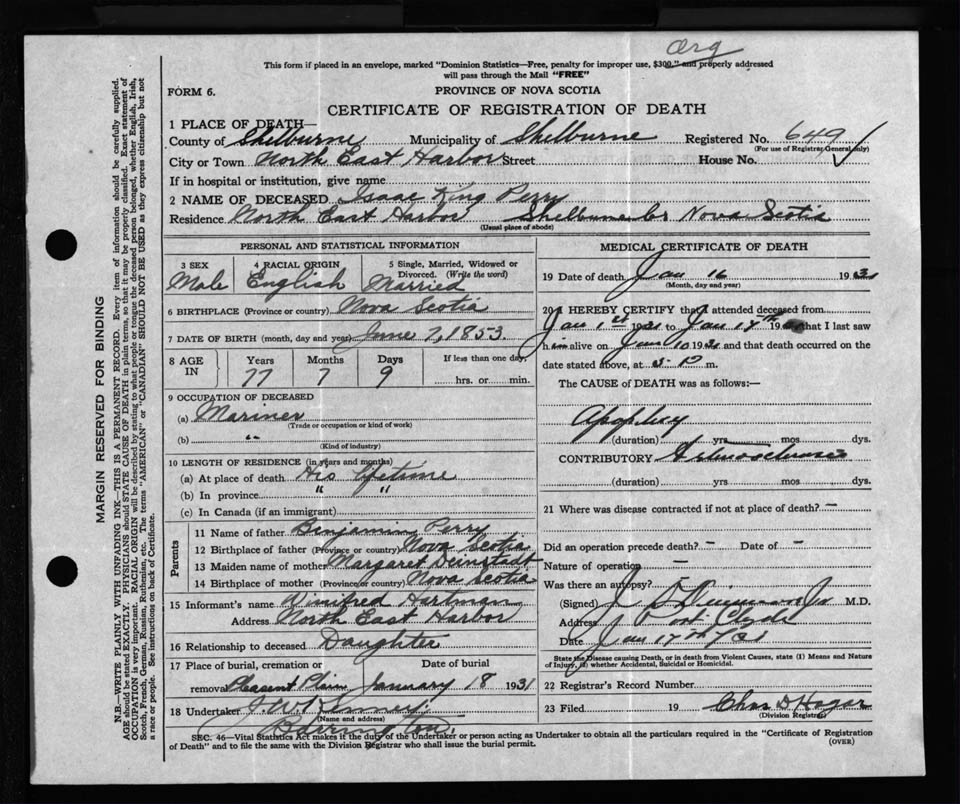 arg
This form if placed in an envelope, marked "Dominion Statistics—Free, penalty for improper use, $300," and properly addressed
will pass through the Mail "FREE"
FORM 6.
PROVINCE OF NOVA SCOTIA
CERTIFICATE OF REGISTRATION OF DEATH
1 PLACE OF DEATH—
County of Shelburne Municipality of Shelburne Registered No. 649
(For use of Registrar General only)
City or Town North East Harbor Street House No.
If in hospital or institution, give name
2 NAME OF DECEASED Isaac King Perry
Residence North East Harbor Shelburne Co Nova Scotia
(Usual place of abode)
PERSONAL AND STATISTICAL INFORMATION
3 SEX 4 RACIAL ORIGIN 5 Single, Married, Widowed or
Divorced. (Write the word)
Male English Married
6 BIRTHPLACE (Province or country) Nova Scotia
7 DATE OF BIRTH (month, day and year) June 7, 1853
8 AGE IN Years Months Days If less than one day,
77 7 9 hrs. or min.
9 OCCUPATION OF DECEASED
(a) Mariner
(Trade or occupation or kind of work)
(b) "
(Kind of industry)
10 LENGTH OF RESIDENCE (in years and months)
(a) At place of death His lifetime
(b) In province " "
(c) In Canada (if an immigrant)
Parents
11 Name of father Benjamin Perry
12 Birthplace of father (Province or country) Nova Scotia
13 Maiden name of mother Margaret
14 Birthplace of mother (Province or country) Nova Scotia
15 Informant's name Winifred Hartman
Address North East Harbor
16 Relationship to deceased Daughter
17 Place of burial, cremation or Date of burial
removal Pleasent Plain January 18 1931
18 Undertaker J.W. Kenney
(Name and address)
Barrington.
MEDICAL CERTIFICATE OF DEATH
19 Date of death Jan 16 1931
(Month, day and year)
20 I HEREBY CERTIFY that I attended deceased from
Jan 1st 1931 to Jan 17th 19 that I last saw
h im alive on Jan 10 1931 and that death occurred on the
date stated above, at m.
The CAUSE OF DEATH was as follows:—
Apoplexy
(duration) yrs mos dys.
CONTRIBUTORY Arteriosclerosis
(duration) yrs mos dys.
21 Where was disease contracted if not at place of death? –
Did an operation precede death? – Date of –
Nature of operation –
Was there an autopsy?
(Signed) M.D.
Address Port Clyde
Date Jan 17th /31
State the Disease causing Death, or in death from Violent Causes, state (1) Means and Nature
of Injury, (2) whether Accidental, Suicidal or Homicidal.
22 Registrar's Record Number
23 Filed 19 Chas D Hagar
(Division Registrar)
SEC. 46—Vital Statistics Act makes it the duty of the Undertaker or person acting as Undertaker to obtain all the particulars required in the "Certificate of Registration
of Death" and to file the same with the Division Registrar who shall issue the burial permit.
(OVER)
MARGIN RESERVED FOR BINDING
N.B.—WRITE PLAINLY WITH UNFADING INK—THIS IS A PERMANENT RECORD. Every item of information should be carefully supplied.
AGE should be stated EXACTLY. PHYSICIANS should STATE CAUSE OF DEATH in plain terms, so that it may be properly classified. Exact statement of
OCCUPATION is very important. RACIAL ORIGIN will be described by stating to what people or tongue the deceased person belonged, whether English, Irish,
Scotch, French, German, Russian, Ruthenian, etc. The terms "AMERICAN" or "CANADIAN" SHOULD NOT BE USED as they express citizenship but not
a race or people. See instructions on back of Certificate.